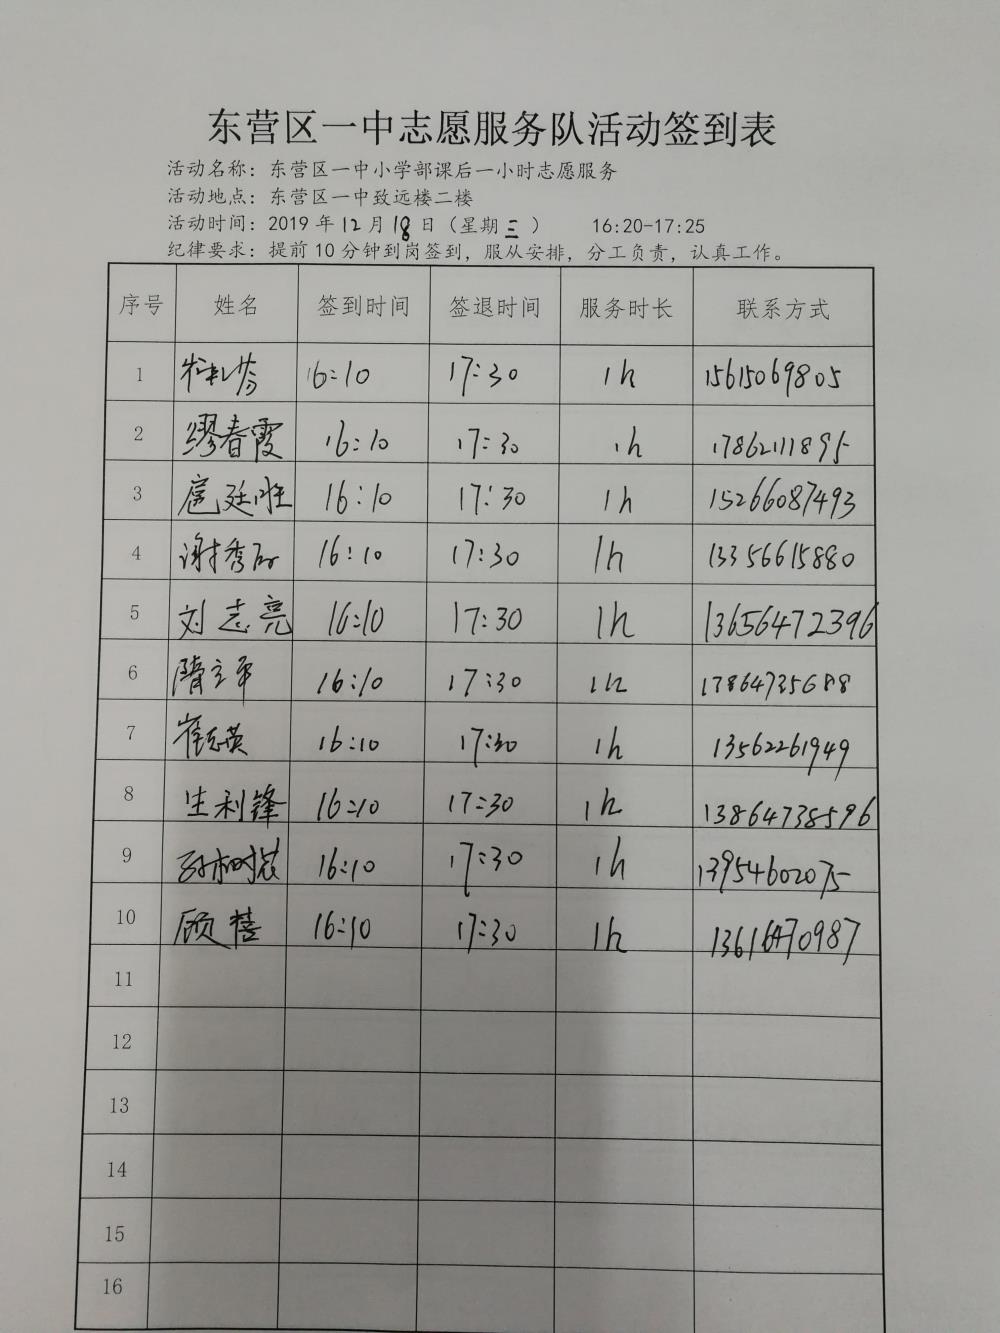 东营区一中志愿服务队活动签到表
活动名称：东营区一中小学部课后一小时志愿服务
活动地点：东营区一中致远楼二楼
活动时间：2019年12月18日（星期三） 16:20-17:25
纪律要求：提前10分钟到岗签到，服从安排，分工负责，认真工作。
序号 姓名 签到时间 签退时间 服务时长 联系方式
1 16:10 17:30 1h 15615069805
2 缪春霞 16:10 17:30 1h 17862111895
3 扈廷胜 16:10 17:30 1h 15266087493
4 谢秀 16:10 17:30 1h 13356615880
5 刘志亮 16:10 17:30 1h 13656472396
6 隋立军 16:10 17:30 1h 17864735688
7 崔志英 16:10 17:30 1h 13562261949
8 生利锋 16:10 17:30 1h 13864738596
9 16:10 17:30 1h 13954602075
10 顾禧 16:10 17:30 1h 13616470987
11
12
13
14
15
16